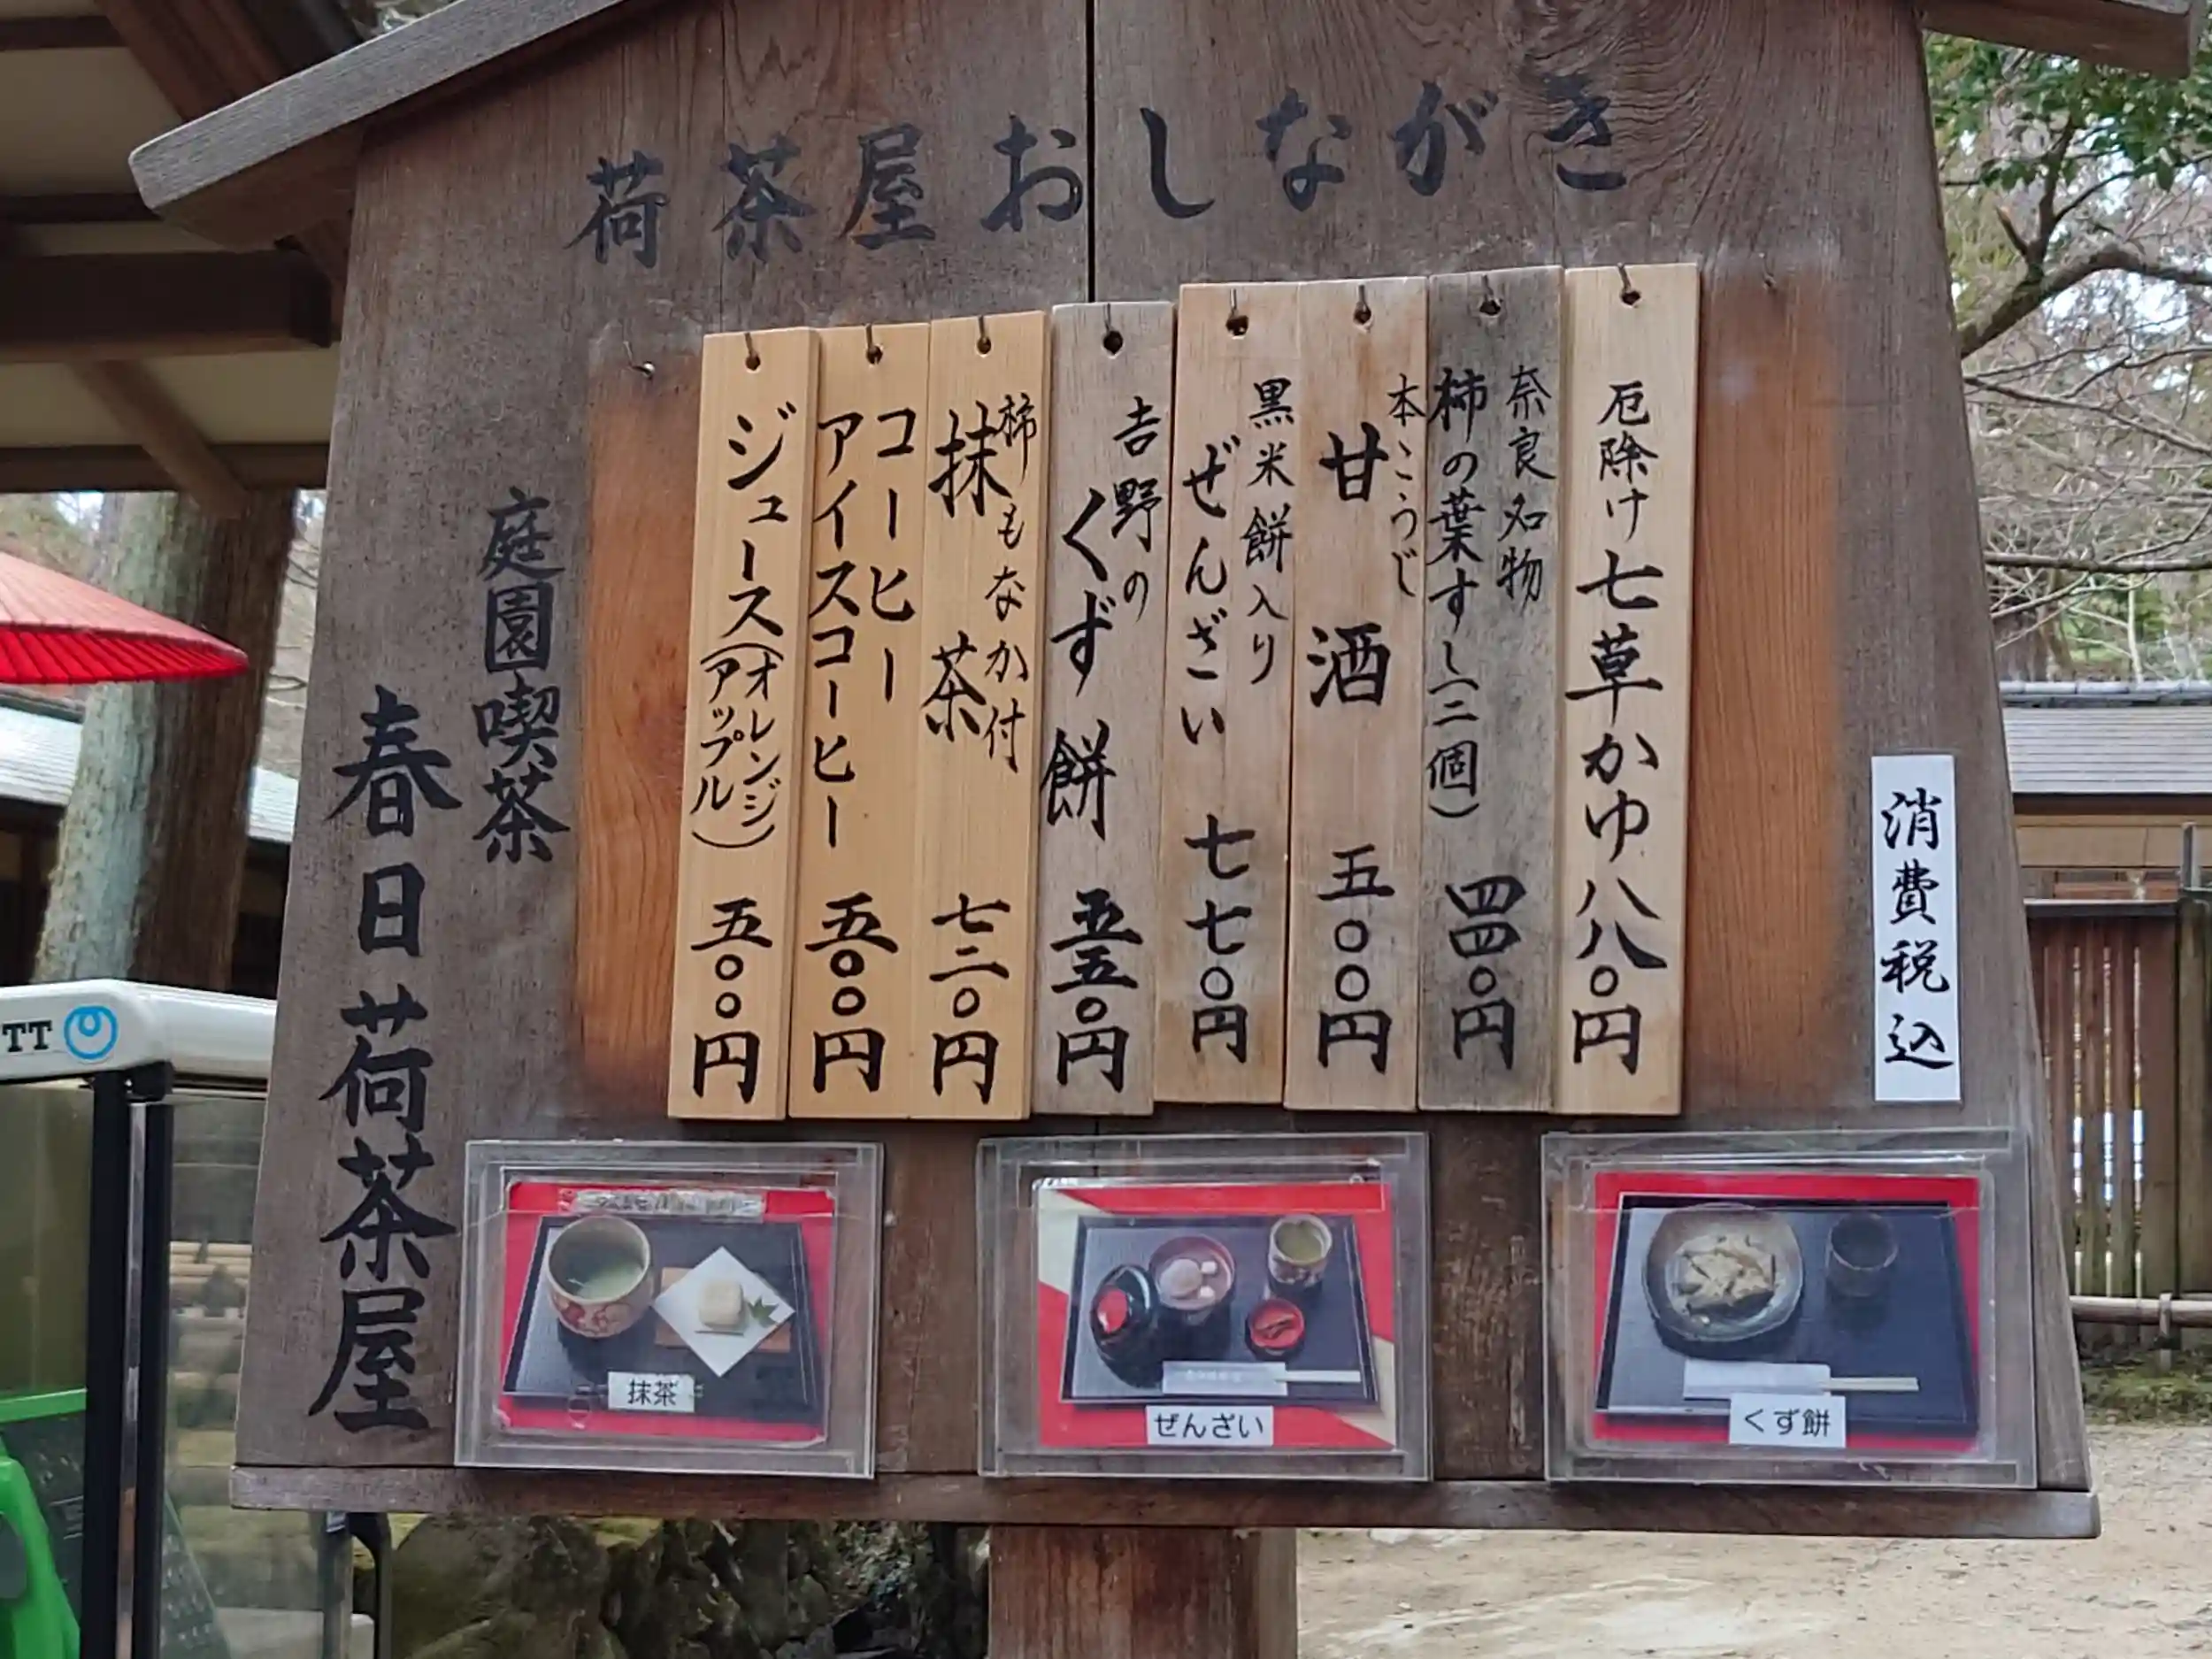 荷茶屋おしながき
消費税込
厄除け七草かゆ 八八〇円
奈良名物
柿の葉すし(二個) 四四〇円
本こうじ
甘酒 五〇〇円
黒米餅入り
ぜんざい 七七〇円
吉野の
くず餅 五五〇円
柿もなか付
抹茶 七二〇円
コーヒー
アイスコーヒー 五〇〇円
ジュース(オレンジ)
(アップル) 五〇〇円
庭園喫茶
春日荷茶屋
抹茶
ぜんざい
くず餅
TT